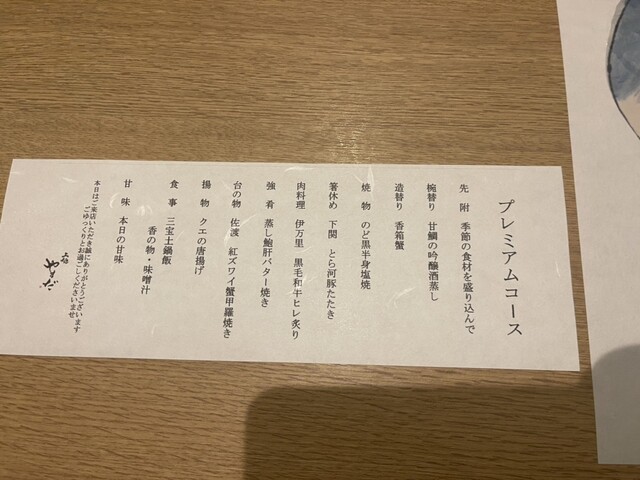 プレミアムコース
先 附 季節の食材を盛り込んで
椀替り 甘鯛の吟醸酒蒸し
造替り 香箱蟹
焼 物 のど黒半身塩焼
箸休め 下関 とら河豚たたき
肉料理 伊万里 黒毛和牛ヒレ炙り
強 肴 蒸し鮑肝バター焼き
台の物 佐渡 紅ズワイ蟹甲羅焼き
揚 物 クエの唐揚げ
食 事 三宝土鍋飯
香の物・味噌汁
甘 味 本日の甘味
本日はご来店いただき誠にありがとうございます
ごゆっくりとお過ごしくださいませ
やまだ